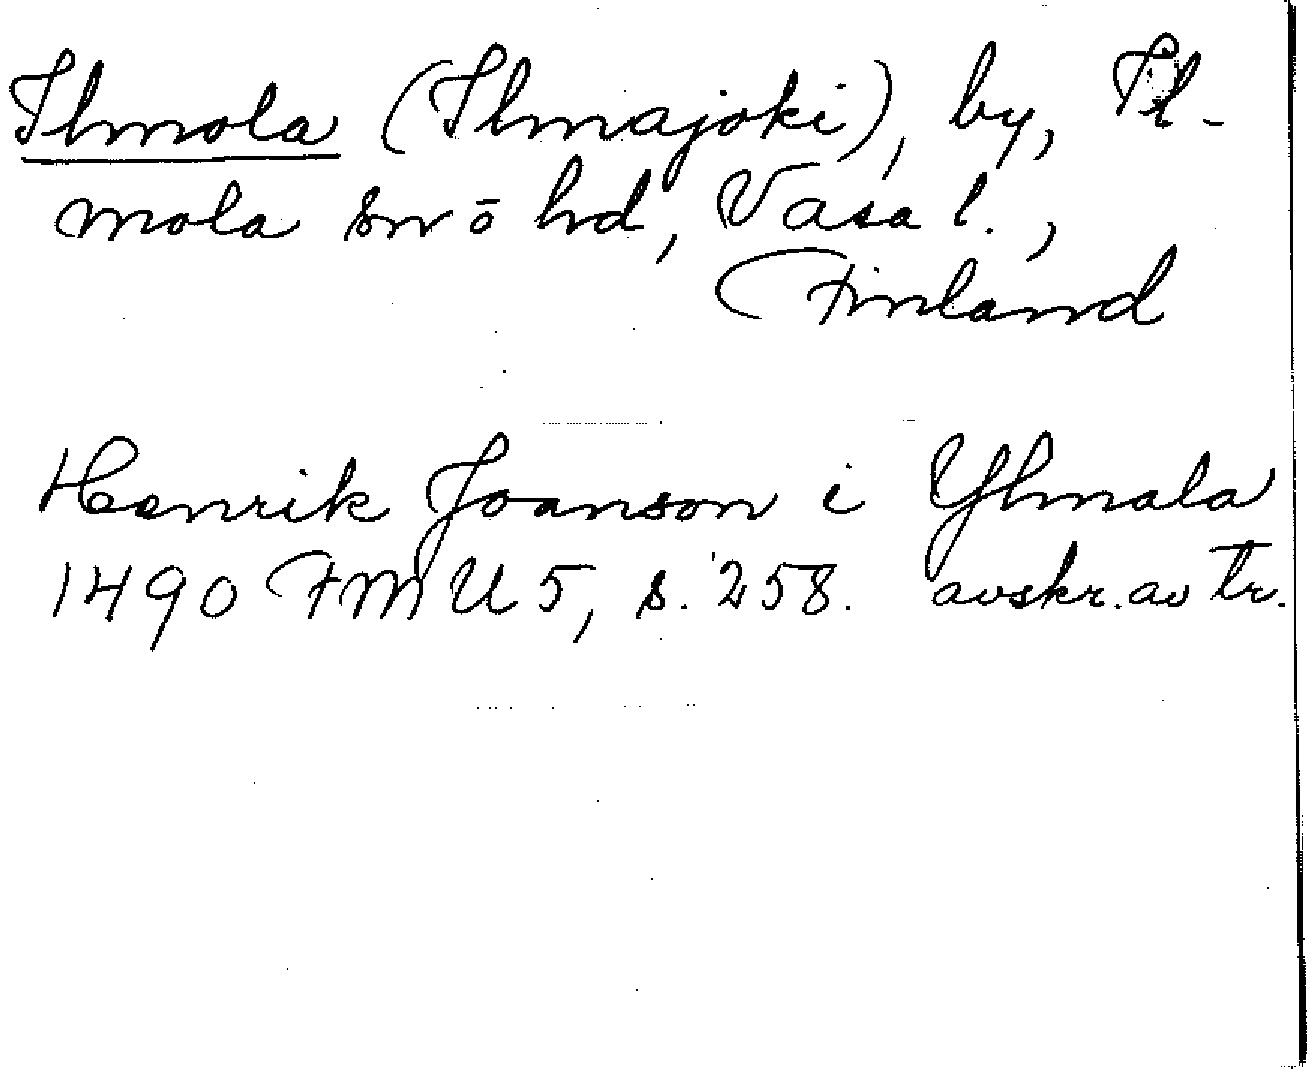 Ilmola (Ilmajoki), by, Il-
mola sn ō hd, Vasa l.,
Finland
Henrik Joanson i Ylmala
1490 FMU 5, s. 258. avskr. av tr.